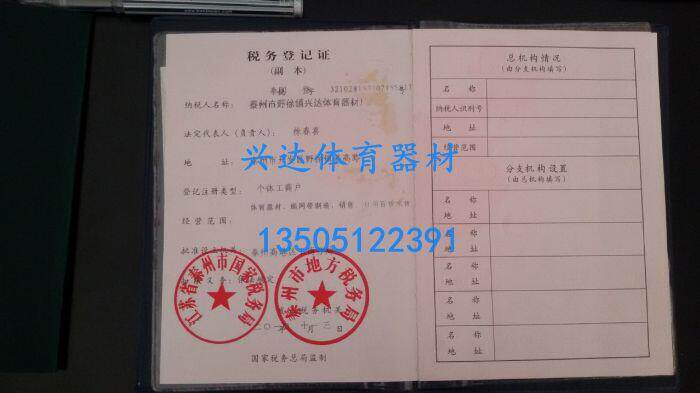 税务登记证
(副 本)
纳税人名称:
泰州市野徐镇兴达体育器材厂
法定代表人(负责人):
徐春喜
地 址:
登记注册类型:
个体工商户
体育器材、绳网带制造、销售
经营范围:
兴达体育器材
13505122391
江苏省泰州市国家税务局
泰州市地方税务局
国家税务总局监制
总机构情况
(由分支机构填写)
名 称
纳税人识别号
地 址
经营范围
分支机构设置
(由总机构填写)
名 称
地 址
名 称
地 址
名 称
地 址
名 称
地 址
名 称
地 址